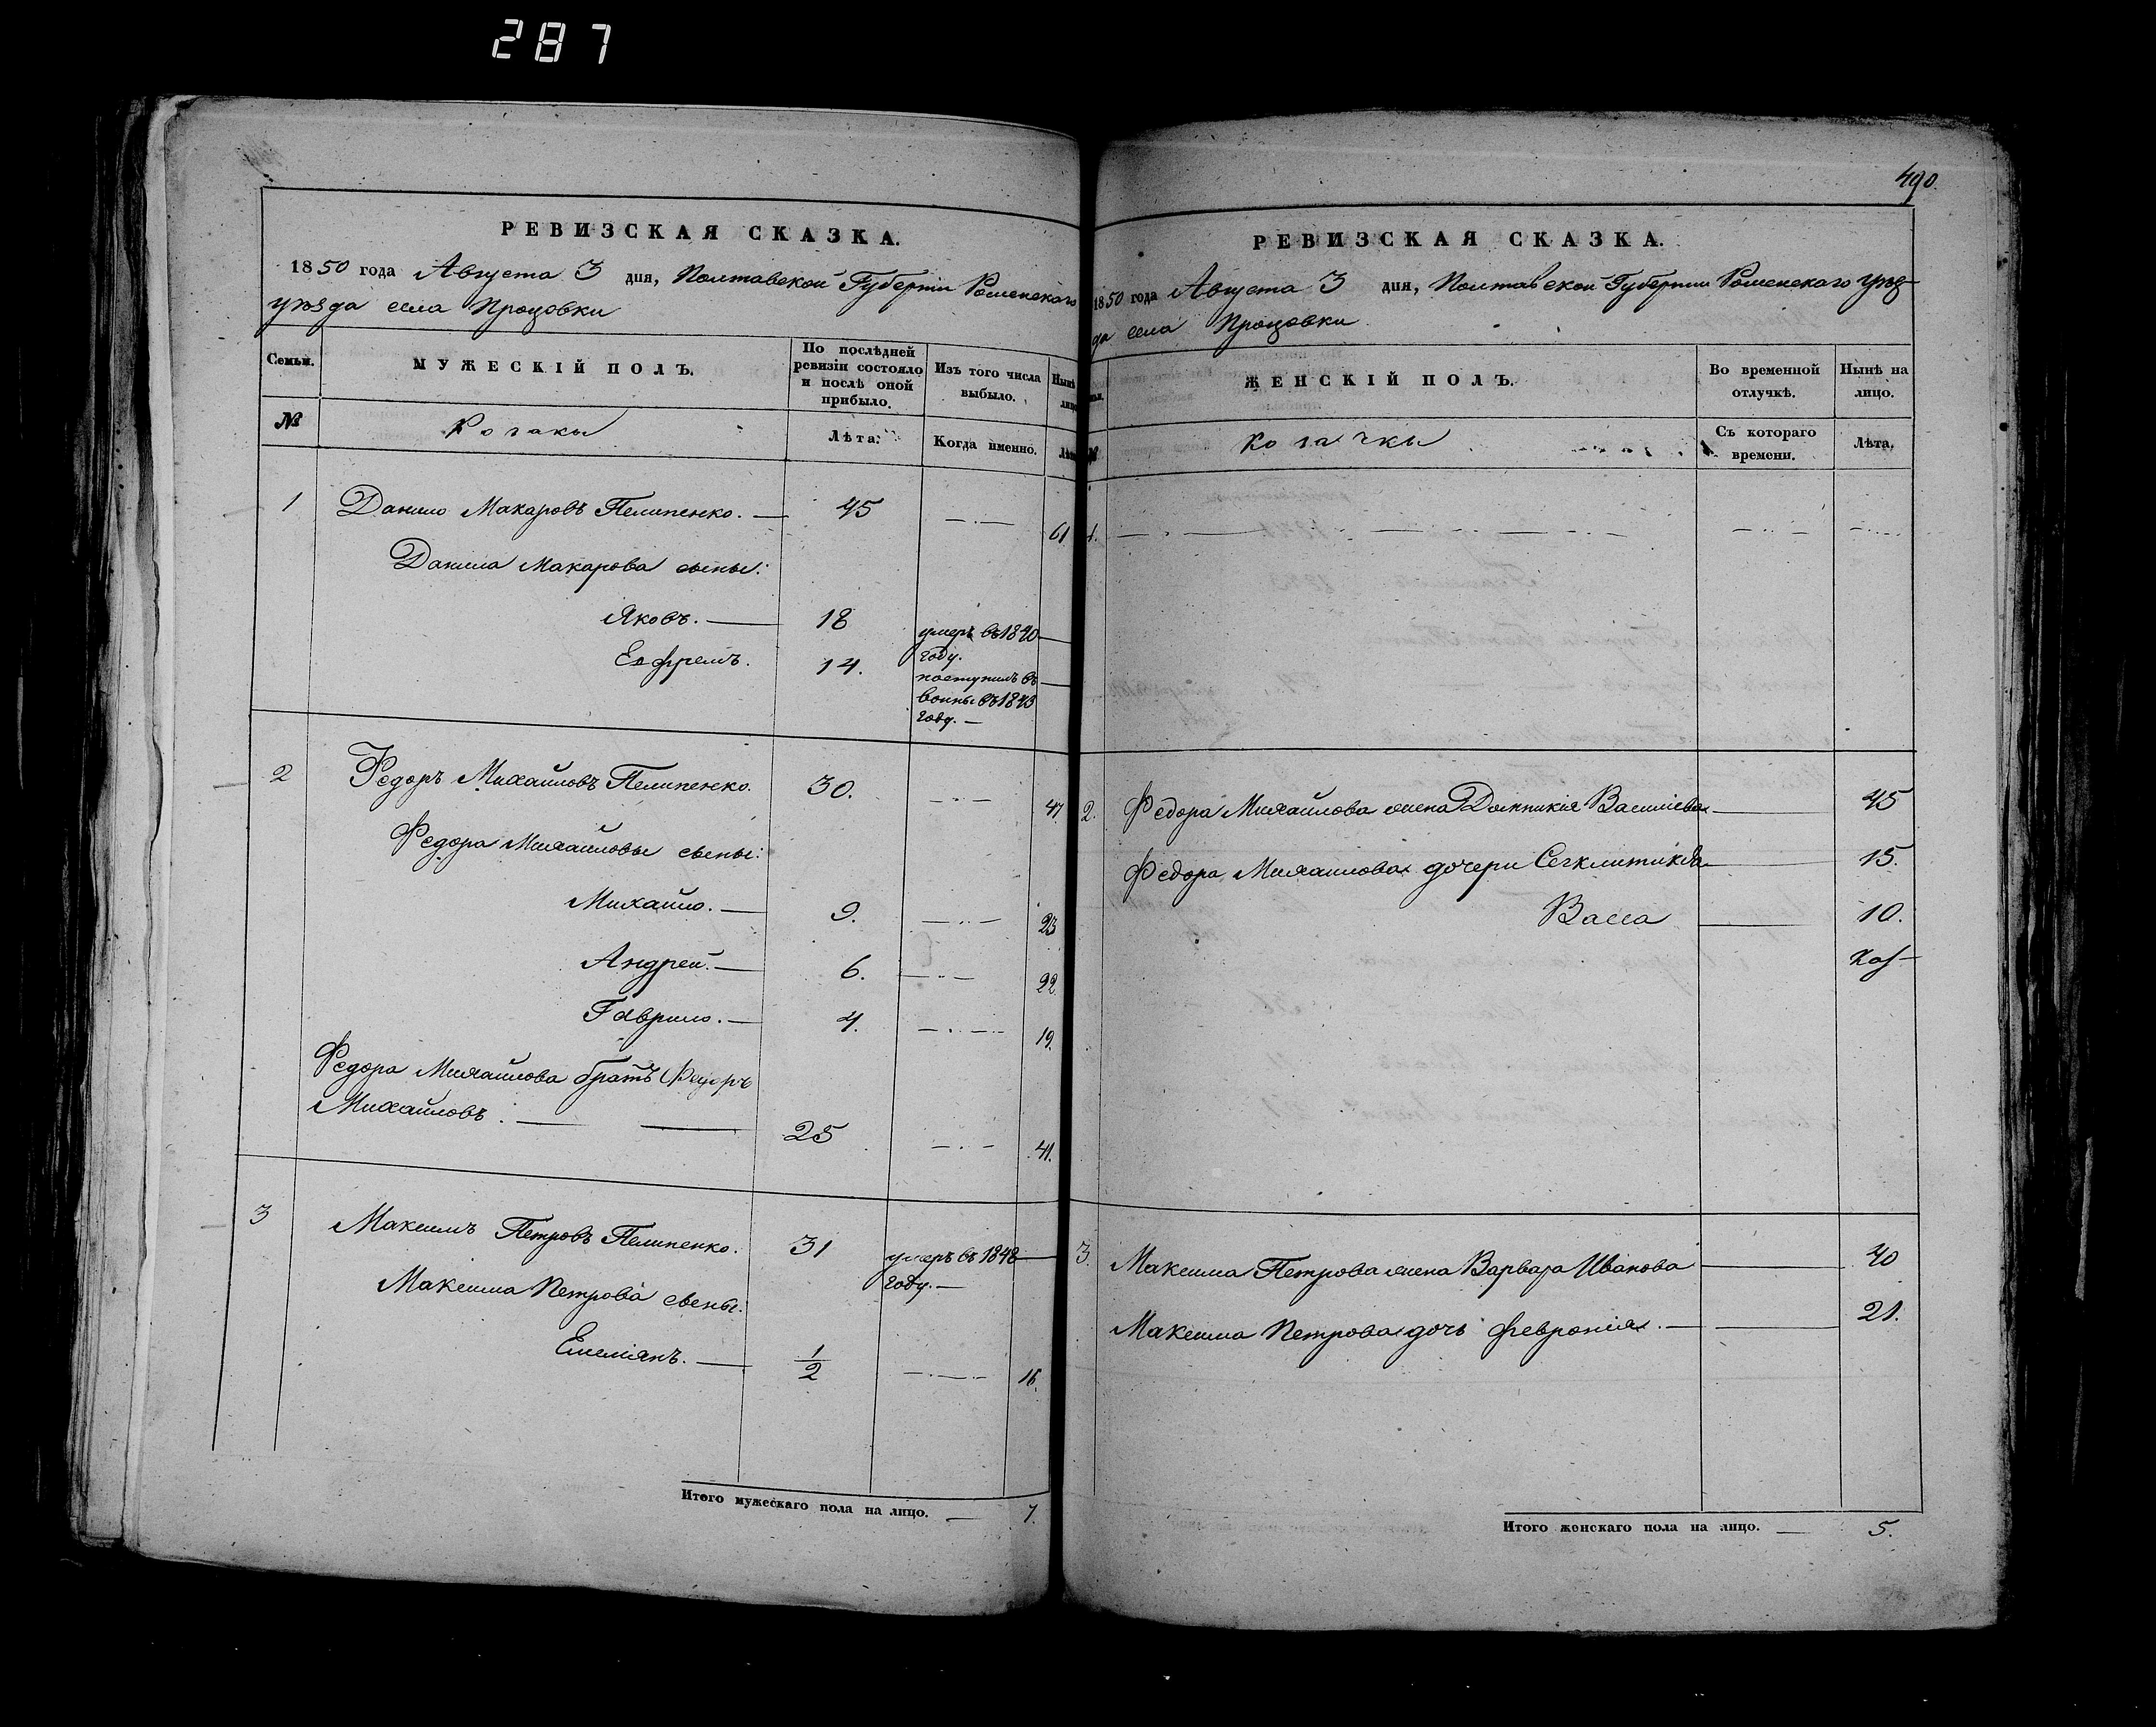 287
490.
РЕВИЗСКАЯ СКАЗКА.
1850 года Августа 3 дня, Полтавской Губерніи Роменскаго
уѣзда села Процовки
Семьи. МУЖЕСКІЙ ПОЛЪ. По послѣдней ревизіи состояло и послѣ оной прибыло. Изъ того числа выбыло. Нынѣ лицо
№ Козаки Лѣта. Когда именно. Лѣта
1 Данило Макаровъ Пелипенко. — 45 — 61
Данила Макарова сыны:
Яковъ. — 18 умеръ въ 1840 —
году.
Ефремъ. 14. поступилъ въ —
воины въ 1843
году. —
2 Федоръ Михайловъ Пелипенко. 30. — 47.
Федора Михайловы сыны:
Михайло. — 9. — 23
Андрей. — 6. — 22
Гаврило. — 4. — 19.
Федора Михайлова братъ Федоръ
Михайловъ. — 25 — 41.
3 Максимъ Петровъ Пелипенко. 31 умеръ въ 1848 —
году. —
Максима Петрова сыны:
Емеліянъ. — 1/2 — 16.
Итого мужескаго пола на лицо. — 7.
РЕВИЗСКАЯ СКАЗКА.
1850 года Августа 3 дня, Полтавской Губерніи Роменскаго уѣз-
да села Процовки
ЖЕНСКІЙ ПОЛЪ. Во временной отлучкѣ. Нынѣ на лицо.
№ Козачки Съ котораго времени. Лѣта.
1. — — —
2. Федора Михайлова жена Домникія Василіева — 45
Федора Михайлова дочери Сегклитикія — 15.
Васса — 10.
3. Максима Петрова жена Варвара Иванова — 40
Максима Петрова дочь Февронія. — 21.
Итого женскаго пола на лицо. — 5.